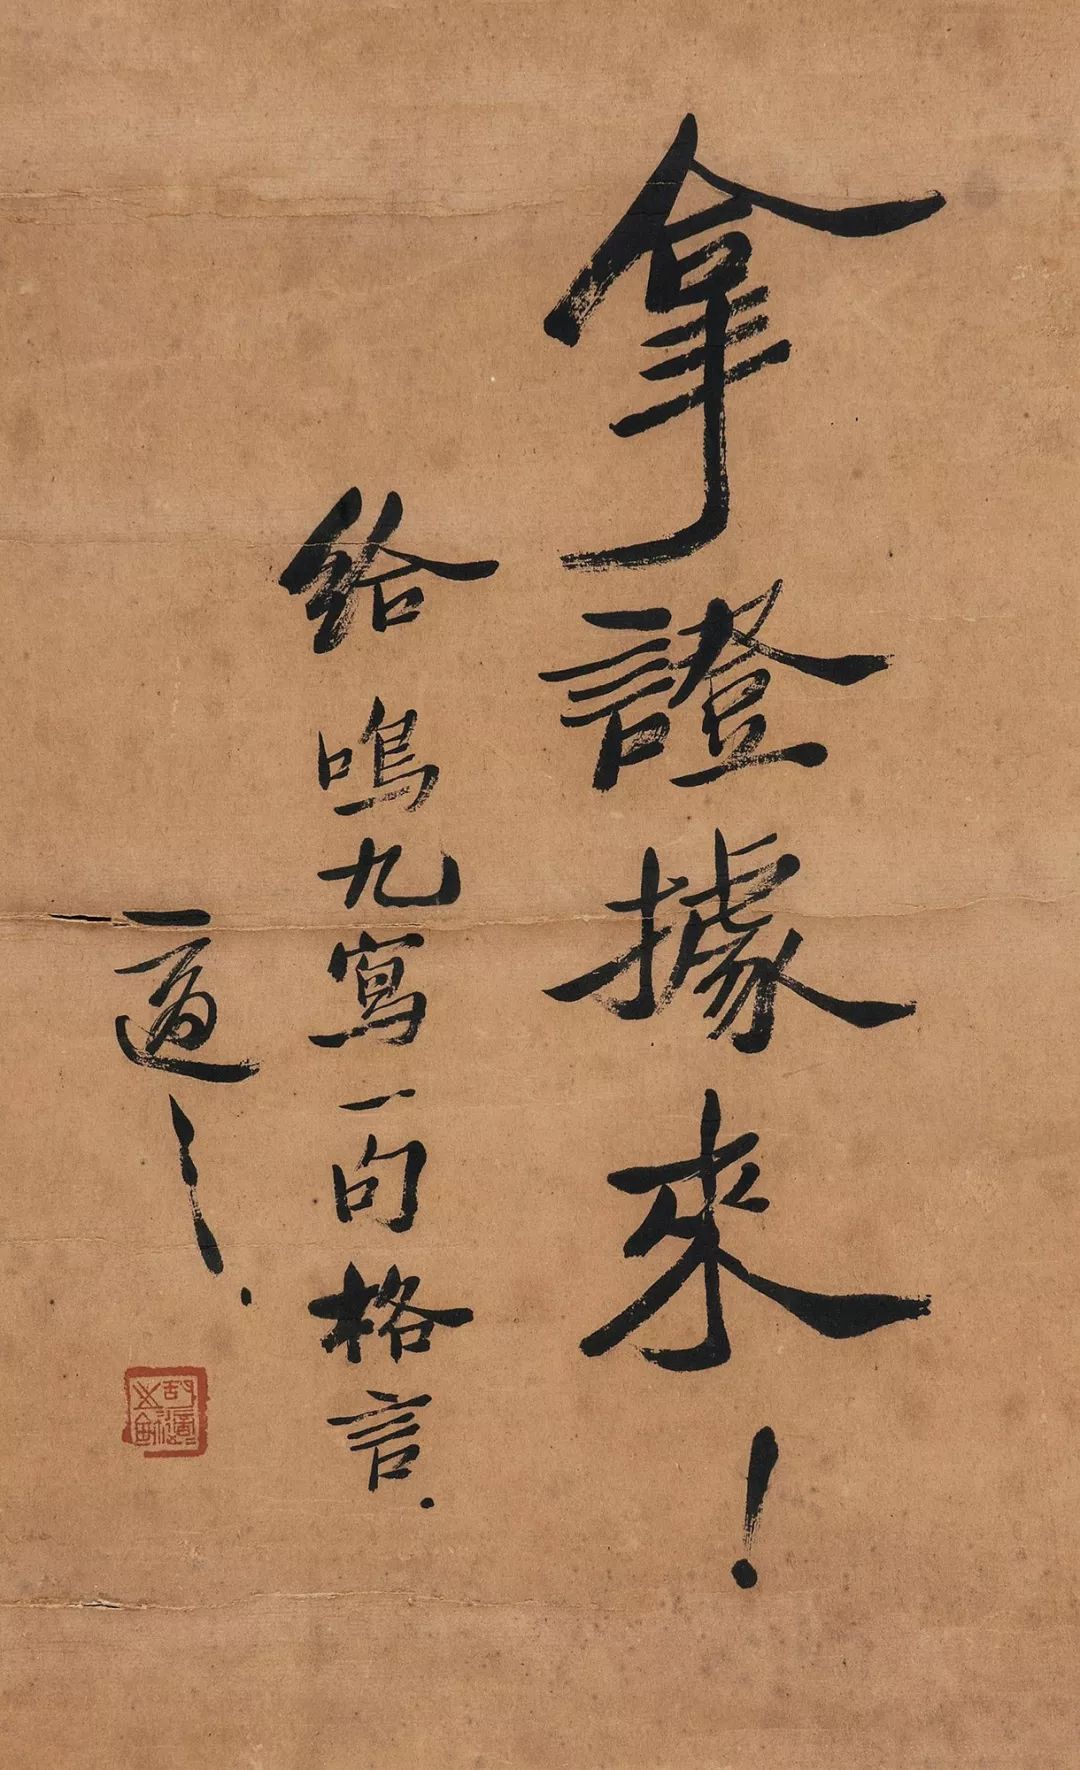 拿證據來！
給鳴九寫一句格言.
適之.
胡適之